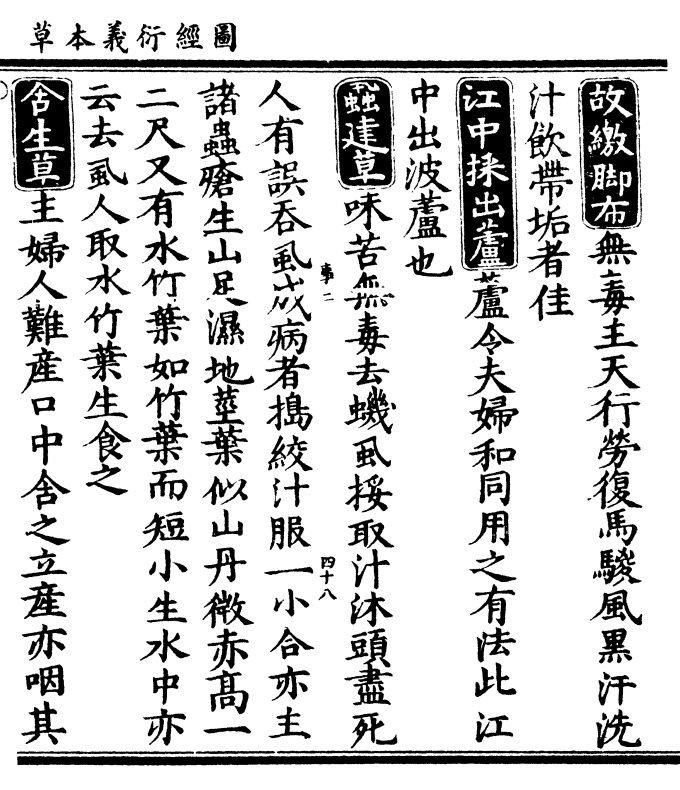 圖經衍義本草
故繳脚布無毒主天行勞復馬駿風黑汗洗
汁飲帶垢者佳
江中採出蘆蘆令夫婦和同用之有法此江
中出波蘆也
蝨建草味苦無毒去蟣虱挼取汁沐頭盡死
事二
四十八
人有誤吞風成病者搗絞汁服一小合亦主
諸蟲瘡生山足濕地莖葉似山丹微赤高一
二尺又有水竹葉如竹葉而短小生水中亦
云去虱人取水竹葉生食之
含生草主婦人難産口中含之立産亦咽其